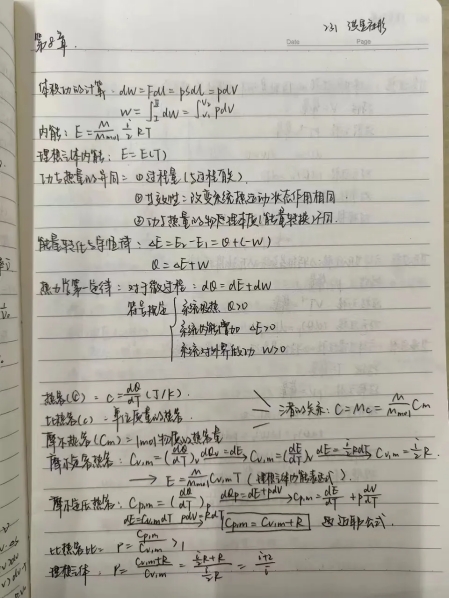 第8章.
Date Page
体积功的计算: dW = Fdl = pSdl = pdV
W = ∫₁² dW = ∫_{V₁}^{V₂} pdV
内能: E = M/M_mol i/2 RT
理想气体内能: E = E(T)
功与热量的异同: ①过程量(与过程有关)
②等效性: 改变系统热运动状态作用相同
③功与热量的物理本质(能量转换)不同.
能量转化与守恒律: ΔE = E₂ - E₁ = Q + (-W)
Q = ΔE + W
热力学第一定律: 对于微过程: dQ = dE + dW
符号规定 { 系统吸热 Q>0
系统内能增加 ΔE>0
系统对外界做功 W>0
热容(C) = C = dQ/dT (J/K).
比热容(c) = 单位质量的热容
三者的关系: C = Mc = M/M_mol Cm
摩尔热容(Cm) = 1mol物质的热容量
摩尔定容热容: Cv,m = (dQ/dT)v dQv=dE → Cv,m = (dE/dT)v dE = i/2 RdT → Cv,m = i/2 R.
→ E = M/M_mol Cv,m T (理想气体内能表达式).
摩尔定压热容: Cp,m = (dQ/dT)p dQp=dE+pdV → Cp,m = dE/dT + p dV/dT
dE=Cv,mdT pdV=RdT → Cp,m = Cv,m + R 迈耶公式.
比热容比: γ = Cp,m/Cv,m > 1
理想气体. γ = (Cv,m+R)/Cv,m = (i/2 R + R)/(i/2 R) = (i+2)/i